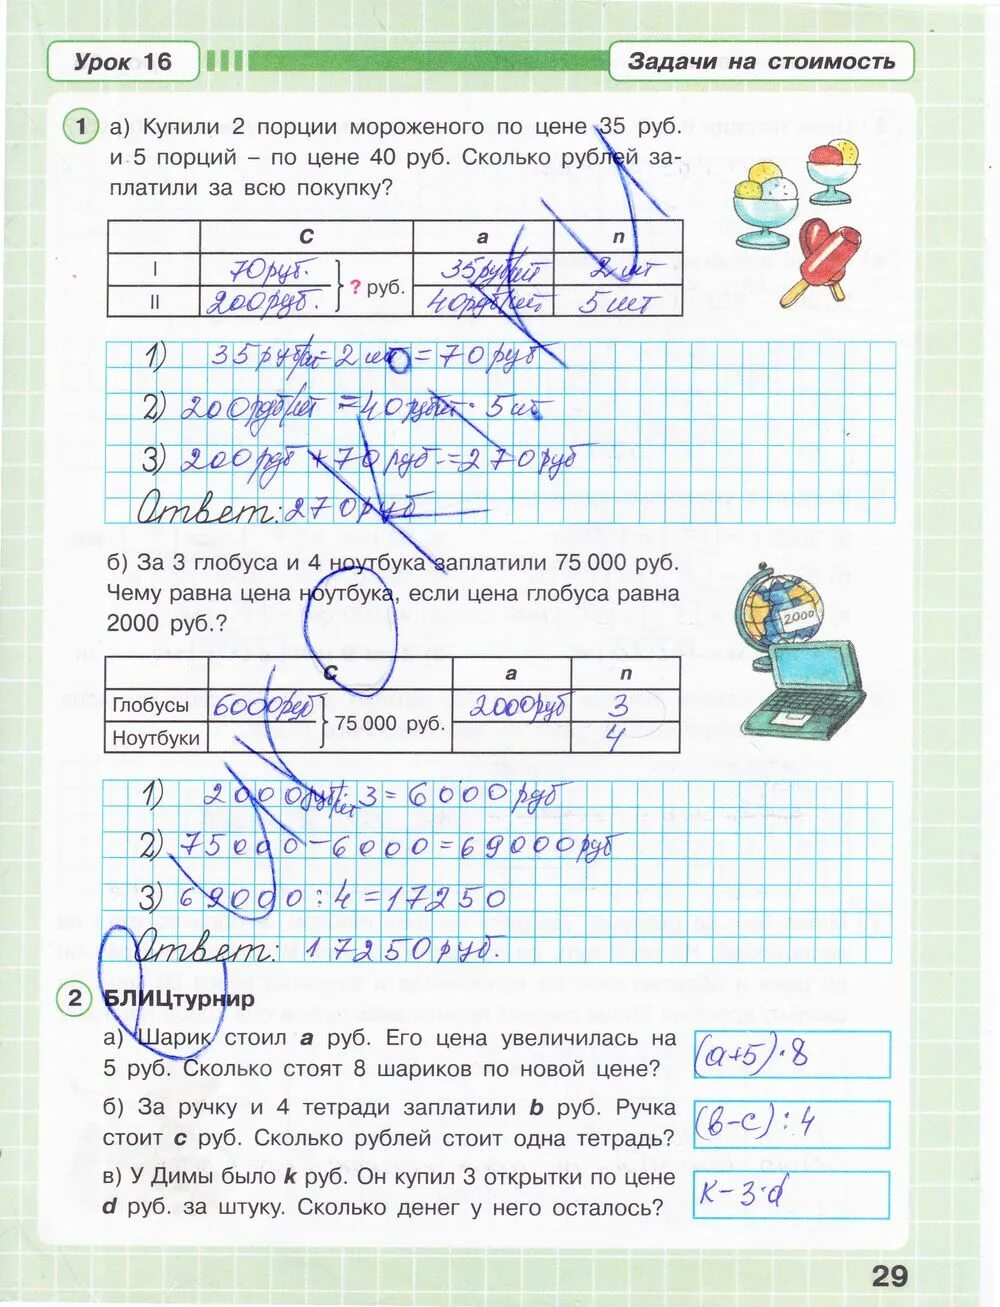 Урок 16
Задачи на стоимость
1 а) Купили 2 порции мороженого по цене 35 руб.
и 5 порций – по цене 40 руб. Сколько рублей за-
платили за всю покупку?
С а n
I 70 руб. 35 руб/шт 2 шт
? руб.
II 200 руб. 40 руб/шт 5 шт
1) 35 руб/шт · 2 шт = 70 руб
2) 200 руб/шт = 40 руб/шт · 5 шт
3) 200 руб + 70 руб = 270 руб
Ответ: 270 руб
б) За 3 глобуса и 4 ноутбука заплатили 75 000 руб.
Чему равна цена ноутбука, если цена глобуса равна
2000 руб.?
2000
С а n
Глобусы 6000 руб 2000 руб 3
75 000 руб.
Ноутбуки 4
1) 2000 руб · 3 = 6000 руб
2) 75000 – 6000 = 69000 руб
3) 69000 : 4 = 17250
Ответ: 17250 руб.
2 БЛИЦтурнир
а) Шарик стоил a руб. Его цена увеличилась на
5 руб. Сколько стоят 8 шариков по новой цене?
(a+5)·8
б) За ручку и 4 тетради заплатили b руб. Ручка
стоит c руб. Сколько рублей стоит одна тетрадь?
(b–c):4
в) У Димы было k руб. Он купил 3 открытки по цене
d руб. за штуку. Сколько денег у него осталось?
к–3·d
29